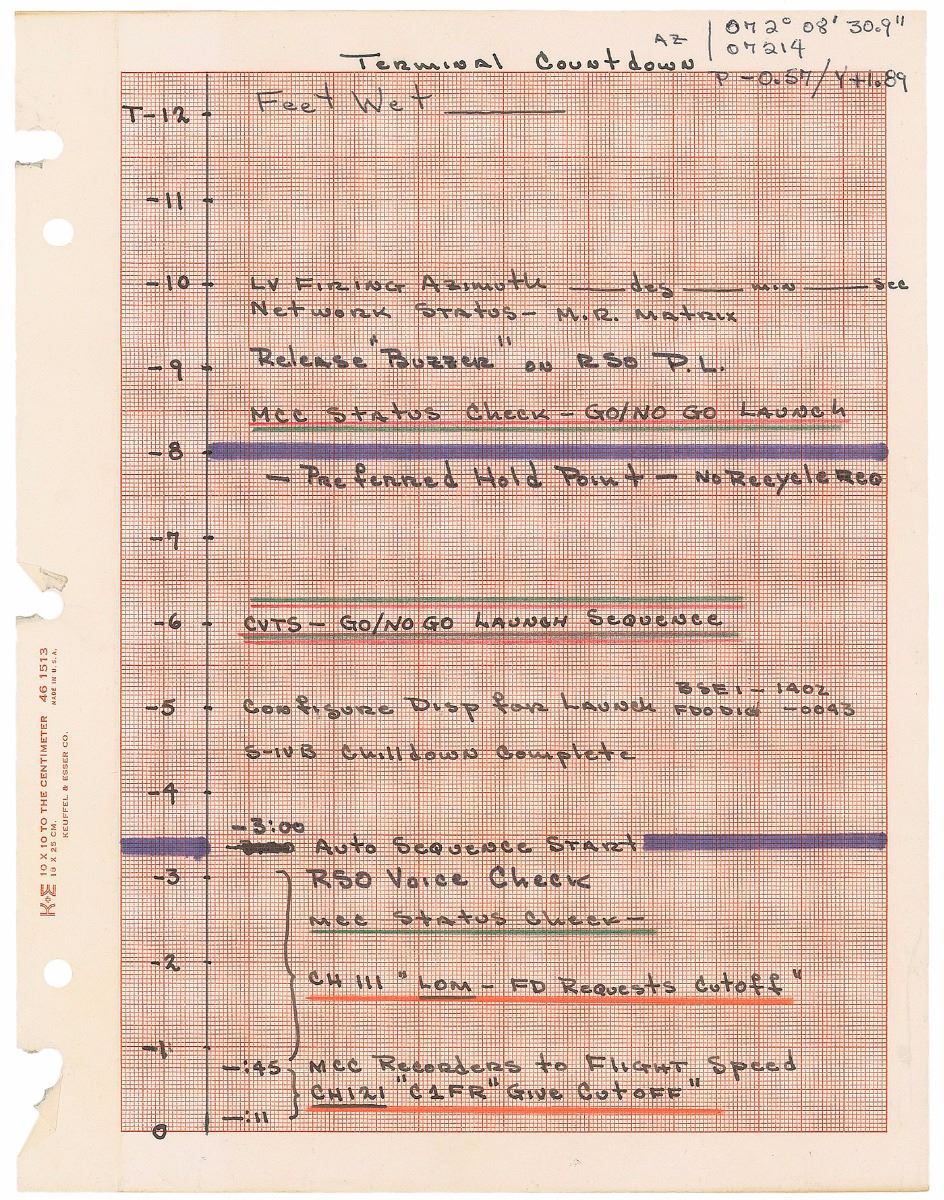 AZ | 072° 08' 30.9"
07214
Terminal Countdown
P -0.57/Y+1.89
T-12 Feet Wet ______
-11
-10 LV Firing Azimuth ____ deg ____ min ____ sec
Network Status- M.R. Matrix
-9 Release "Buzzer" on RSO P.L.
MCC Status Check - GO/NO GO Launch
-8
- Preferred Hold Point - No Recycle REQ
-7
-6 CVTS - GO/NO GO Launch Sequence
BSE1 - 1402
-5 Configure Disp for Launch FDO DIG -0043
S-IVB Chilldown Complete
-4
-3:00
Auto Sequence Start
-3 RSO Voice Check
MCC Status Check-
-2
CH 111 "LOM - FD Requests Cutoff"
-1
-:45 MCC Recorders to Flight Speed
CH121 "C1FR" Give Cutoff"
-:11
0
K+E 10 X 10 TO THE CENTIMETER 46 1513
18 X 25 CM. MADE IN U.S.A.
KEUFFEL & ESSER CO.